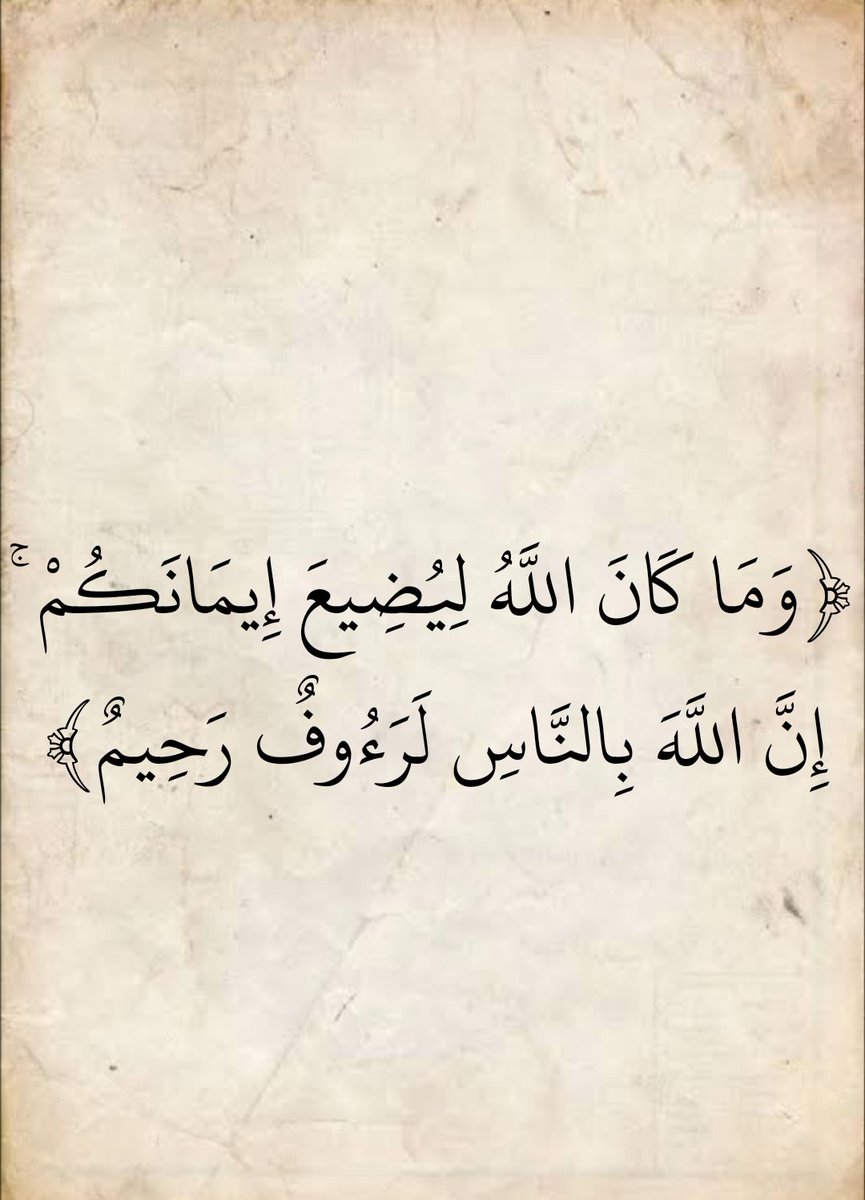 ﴿وَمَا كَانَ اللَّهُ لِيُضِيعَ إِيمَانَكُمْ ۚ
إِنَّ اللَّهَ بِالنَّاسِ لَرَءُوفٌ رَحِيمٌ﴾